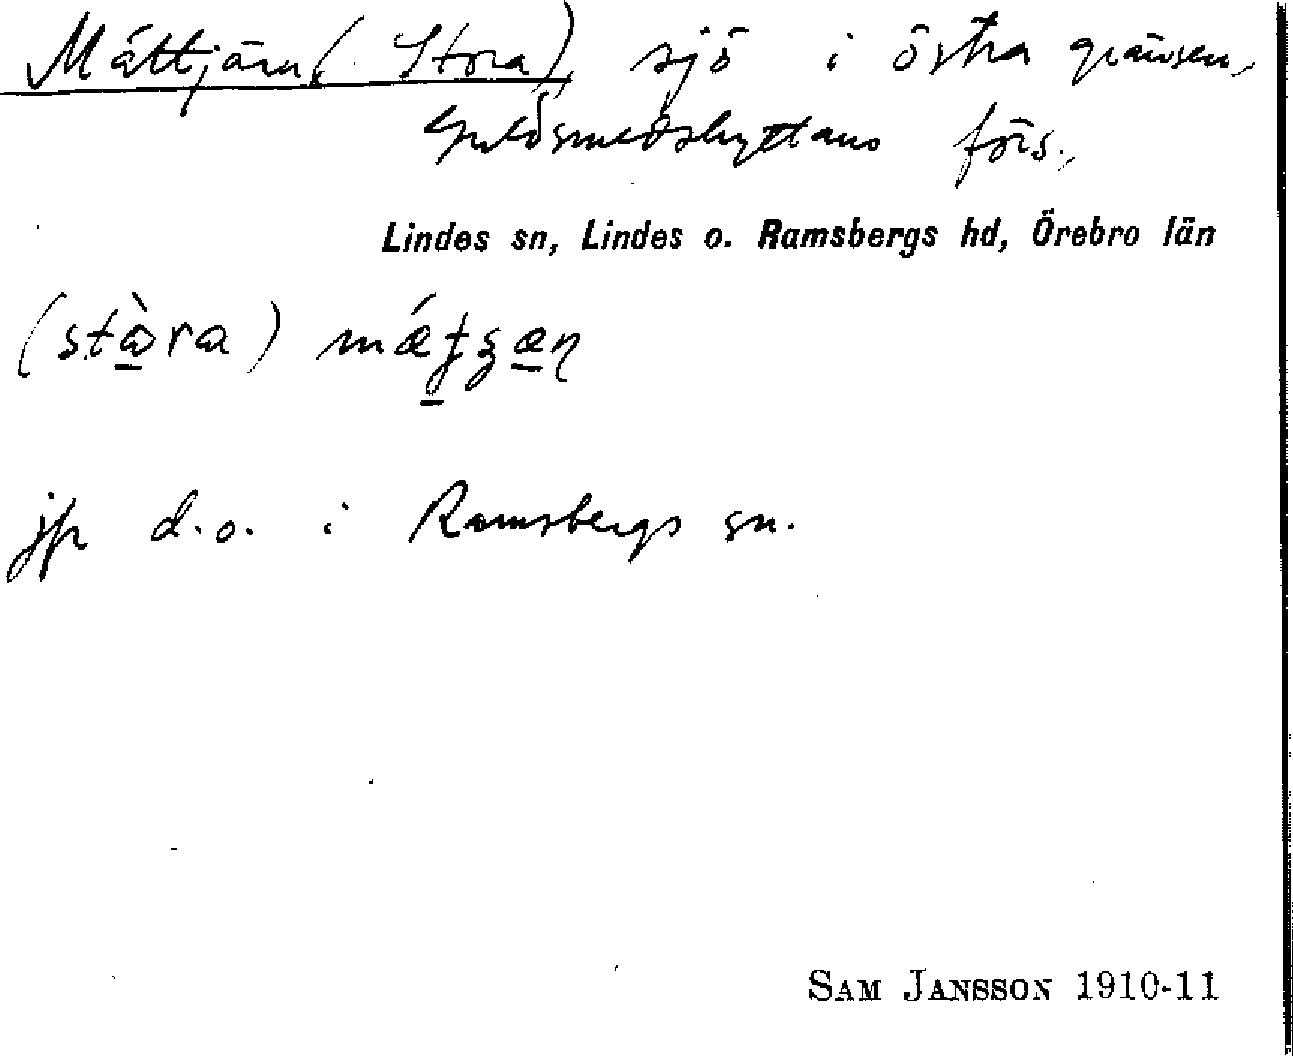 Måttjärn (Stora) sjö i östra gränsen,
Guldsmedshyttans förs.,
Lindes sn, Lindes o. Ramsbergs hd, Örebro län
(stὼra)
jfr d.o. i Ramsbergs sn.
SAM JANSSON 1910-11